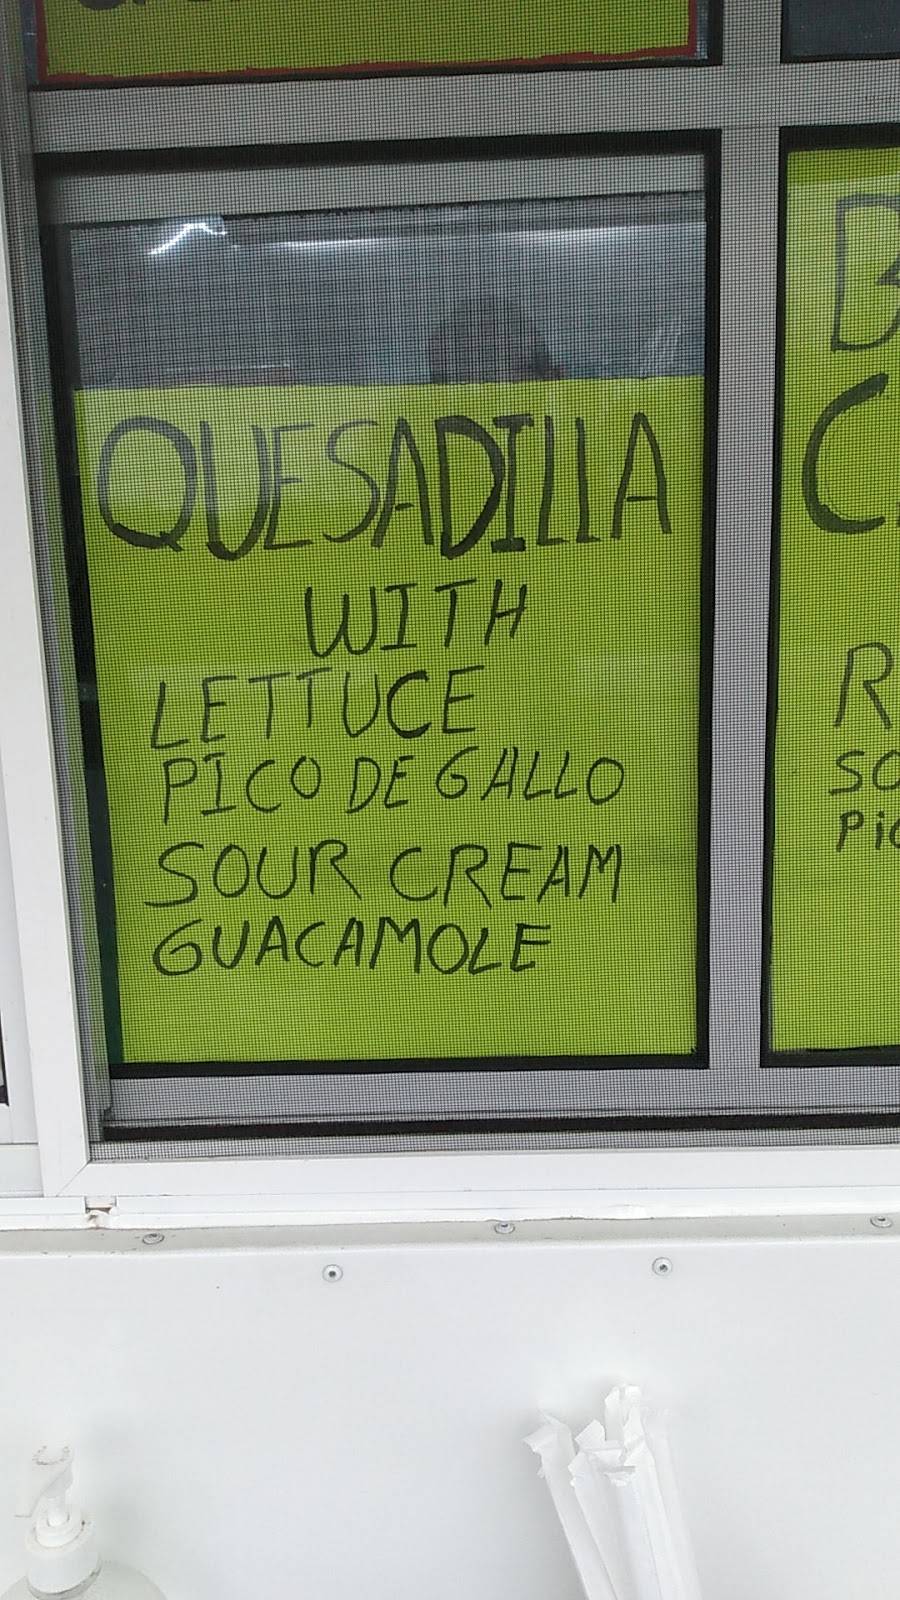 QUESADILLA
WITH
LETTUCE
PICO DE GALLO
SOUR CREAM
GUACAMOLE